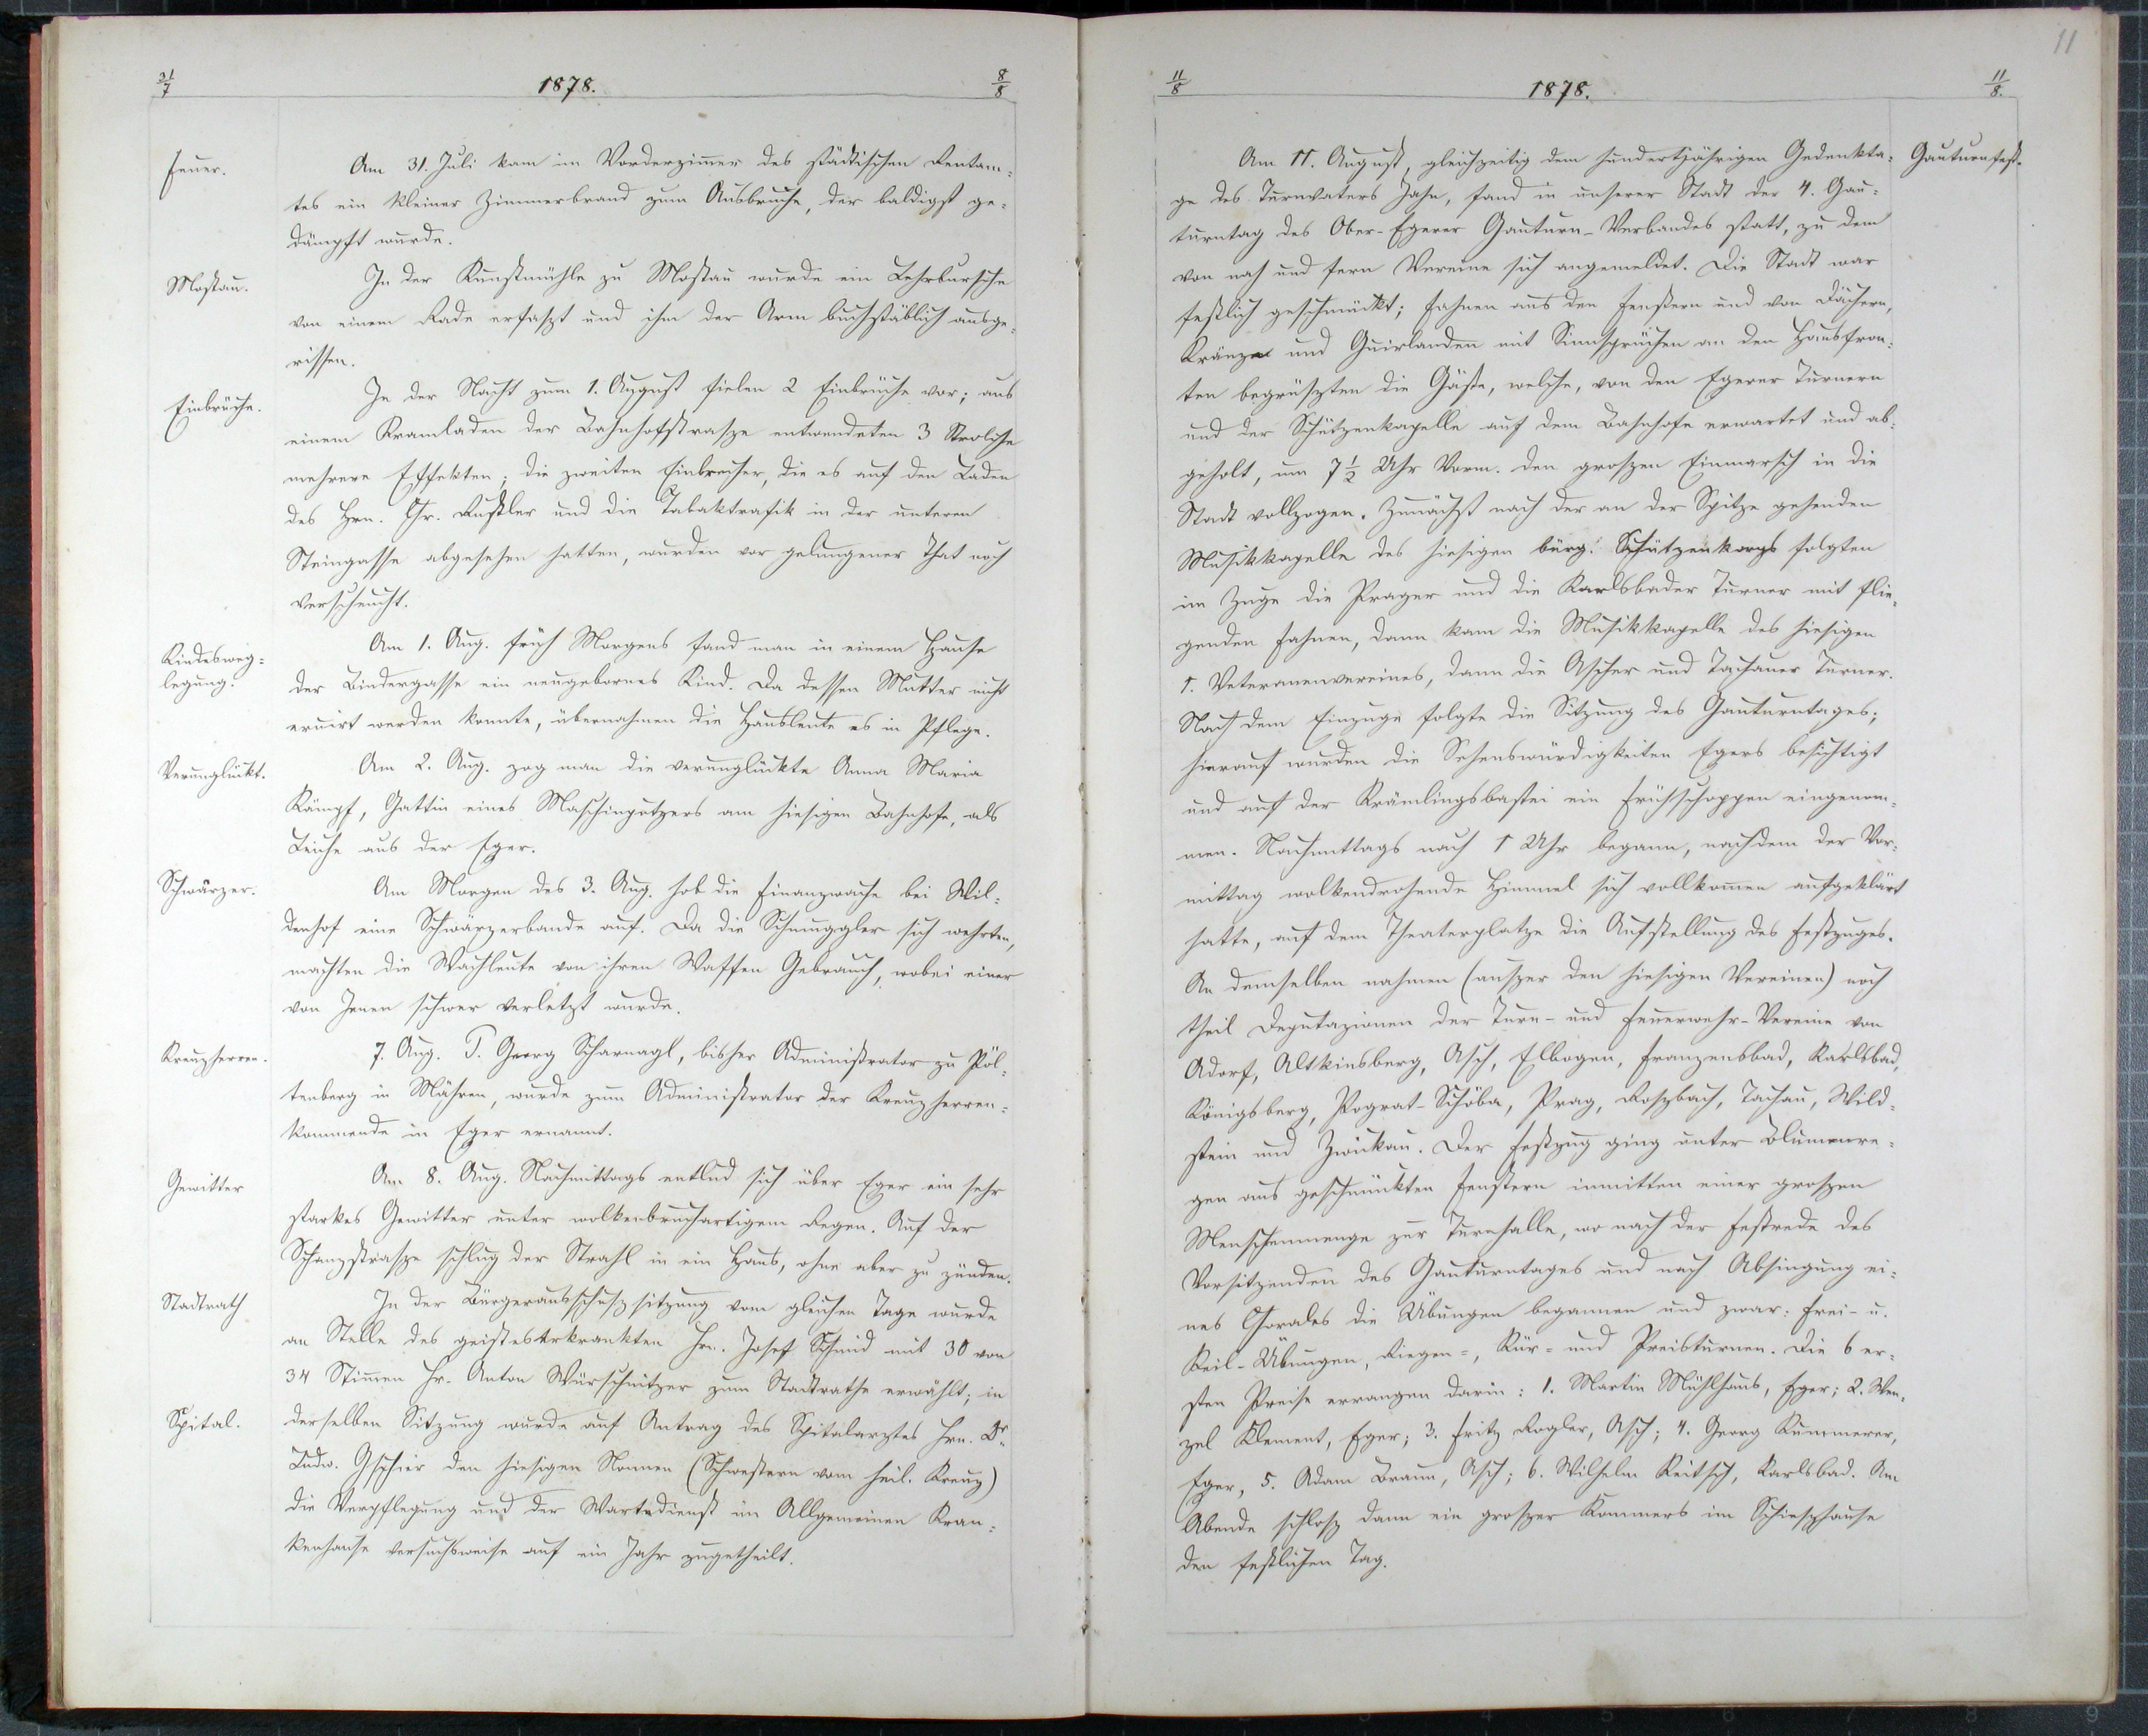 31/7
1878.
8/8
Feuer.
Am 31. Juli kam im Vorderzimmer des städtischen Rentam-
tes ein kleiner Zimmerbrand zum Ausbruche, der baldigst ge-
dämpft wurde.
Mostau.
In der Kunstmühle zu Mostau wurde ein Lehrbursche
von einem Rade erfaszt und ihm der Arm buchstäblich ausge-
rissen.
Einbrüche.
In der Nacht zum 1. August fielen 2 Einbrüche vor; aus
einem Kramladen der Bahnhofstrasze entwendeten 3 Strolche
mehrere Effekten; die zweiten Einbrecher, die es auf den Laden
des Hrn. Chr. Rustler und die Tabaktrafik in der unteren
Steingasse abgesehen hatten, wurden vor gelungener That noch
verscheucht.
Kindesweg-
legung.
Am 1. Aug. früh Morgens fand man in einem Hause
der Bindergasse ein neugebornes Kind. Da dessen Mutter nicht
eruirt werden konnte, übernahmen die Hausleute es in Pflege.
Verunglückt.
Am 2. Aug. zog man die verunglückte Anna Maria
Kämpf, Gattin eines Maschinputzers am hiesigen Bahnhofe, als
Leiche aus der Eger.
Schwärzer.
Am Morgen des 3. Aug. hob die Finanzwache bei Wil-
denhof eine Schwärzerbande auf. Da die Schmuggler sich wehrten,
machten die Wachleute von ihren Waffen Gebrauch, wobei einer
von Jenen schwer verletzt wurde.
Kreuzherren.
7. Aug. P. Georg Scharnagl, bisher Administrator zu Pöl-
tenberg in Mähren, wurde zum Administrator der Kreuzherren-
kommende in Eger ernannt.
Gewitter
Am 8. Aug. Nachmittags entlud sich über Eger ein sehr
starkes Gewitter unter wolkenbruchartigem Regen. Auf der
Schanzstrasze schlug der Strahl in ein Haus, ohne aber zu zünden.
Stadtrath
In der Bürgerausschuszsitzung vom gleichen Tage wurde
an Stelle des geisteserkrankten Hrn. Josef Schmid mit 30 von
34 Stimmen Hr. Anton Würschnitzer zum Stadtrathe erwählt; in
Spital.
derselben Sitzung wurde auf Antrag des Spitalarztes Hrn. Dr.
Ludw. Gschier den hiesigen Nonnen (Schwestern vom heil. Kreuz)
die Verpflegung und der Wartedienst im Allgemeinen Kran-
kenhause versuchsweise auf ein Jahr zugetheilt.
11
11/8
1878.
11/8.
Gauturnfest.
Am 11. August, gleichzeitig dem hundertjährigen Gedenkta-
ge des Turnvaters Jahn, fand in unserer Stadt der 4. Gau-
turntag des Ober-Egerer Gauturn-Verbandes statt, zu dem
von nah und fern Vereine sich angemeldet. Die Stadt war
festlich geschmückt; Fahnen aus den Fenstern und von Dächern,
Kränze und Guirlanden mit Sinnsprüchen an den Hausfron-
ten begrüszten die Gäste, welche, von den Egerer Turnern
und der Schützenkapelle auf dem Bahnhofe erwartet und ab-
geholt, um 7 1/2 Uhr Vorm. den groszen Einmarsch in die
Stadt vollzogen. Zunächst nach der an der Spitze gehenden
Musikkapelle des hiesigen bürg. Schützenkorps folgten
im Zuge die Prager und die Karlsbader Turner mit flie-
genden Fahnen, dann kam die Musikkapelle des hiesigen
1. Veteranenvereines, dann die Ascher und Tachauer Turner.
Nach dem Einzuge folgte die Sitzung des Gauturntages;
hierauf wurden die Sehenswürdigkeiten Egers besichtigt
und auf der Krämlingsbastei ein Frühschoppen eingenom-
men. Nachmittags nach 1 Uhr begann, nachdem der Vor-
mittag wolkendrohende Himmel sich vollkommen aufgeklärt
hatte, auf dem Theaterplatze die Aufstellung des Festzuges.
An demselben nahmen (auszer den hiesigen Vereinen) noch
theil Deputazionen der Turn- und Feuerwehr-Vereine von
Adorf, Altkinsberg, Asch, Elbogen, Franzensbad, Karlsbad,
Königsberg, Pograt-Schöba, Prag, Roszbach, Tachau, Wild-
stein und Zwickau. Der Festzug ging unter Blumenre-
gen aus geschmückten Fenstern inmitten einer groszen
Menschenmenge zur Turnhalle, wo nach der Festrede des
Vorsitzenden des Gauturntages und nach Absingung ei-
nes Chorales die Übungen begannen und zwar: Frei- u.
Keil-Übungen, Riegen-, Kür- und Preisturnen. Die 6 er-
sten Preise errangen darin: 1. Martin Mühlhans, Eger; 2. Wen-
zel Klement, Eger; 3. Fritz Rogler, Asch; 4. Georg Kummerer,
Eger, 5. Adam Braun, Asch; 6. Wilhelm Keitsch, Karlsbad. Am
Abende schlosz dann ein groszer Kommers im Schieszhause
den festlichen Tag.